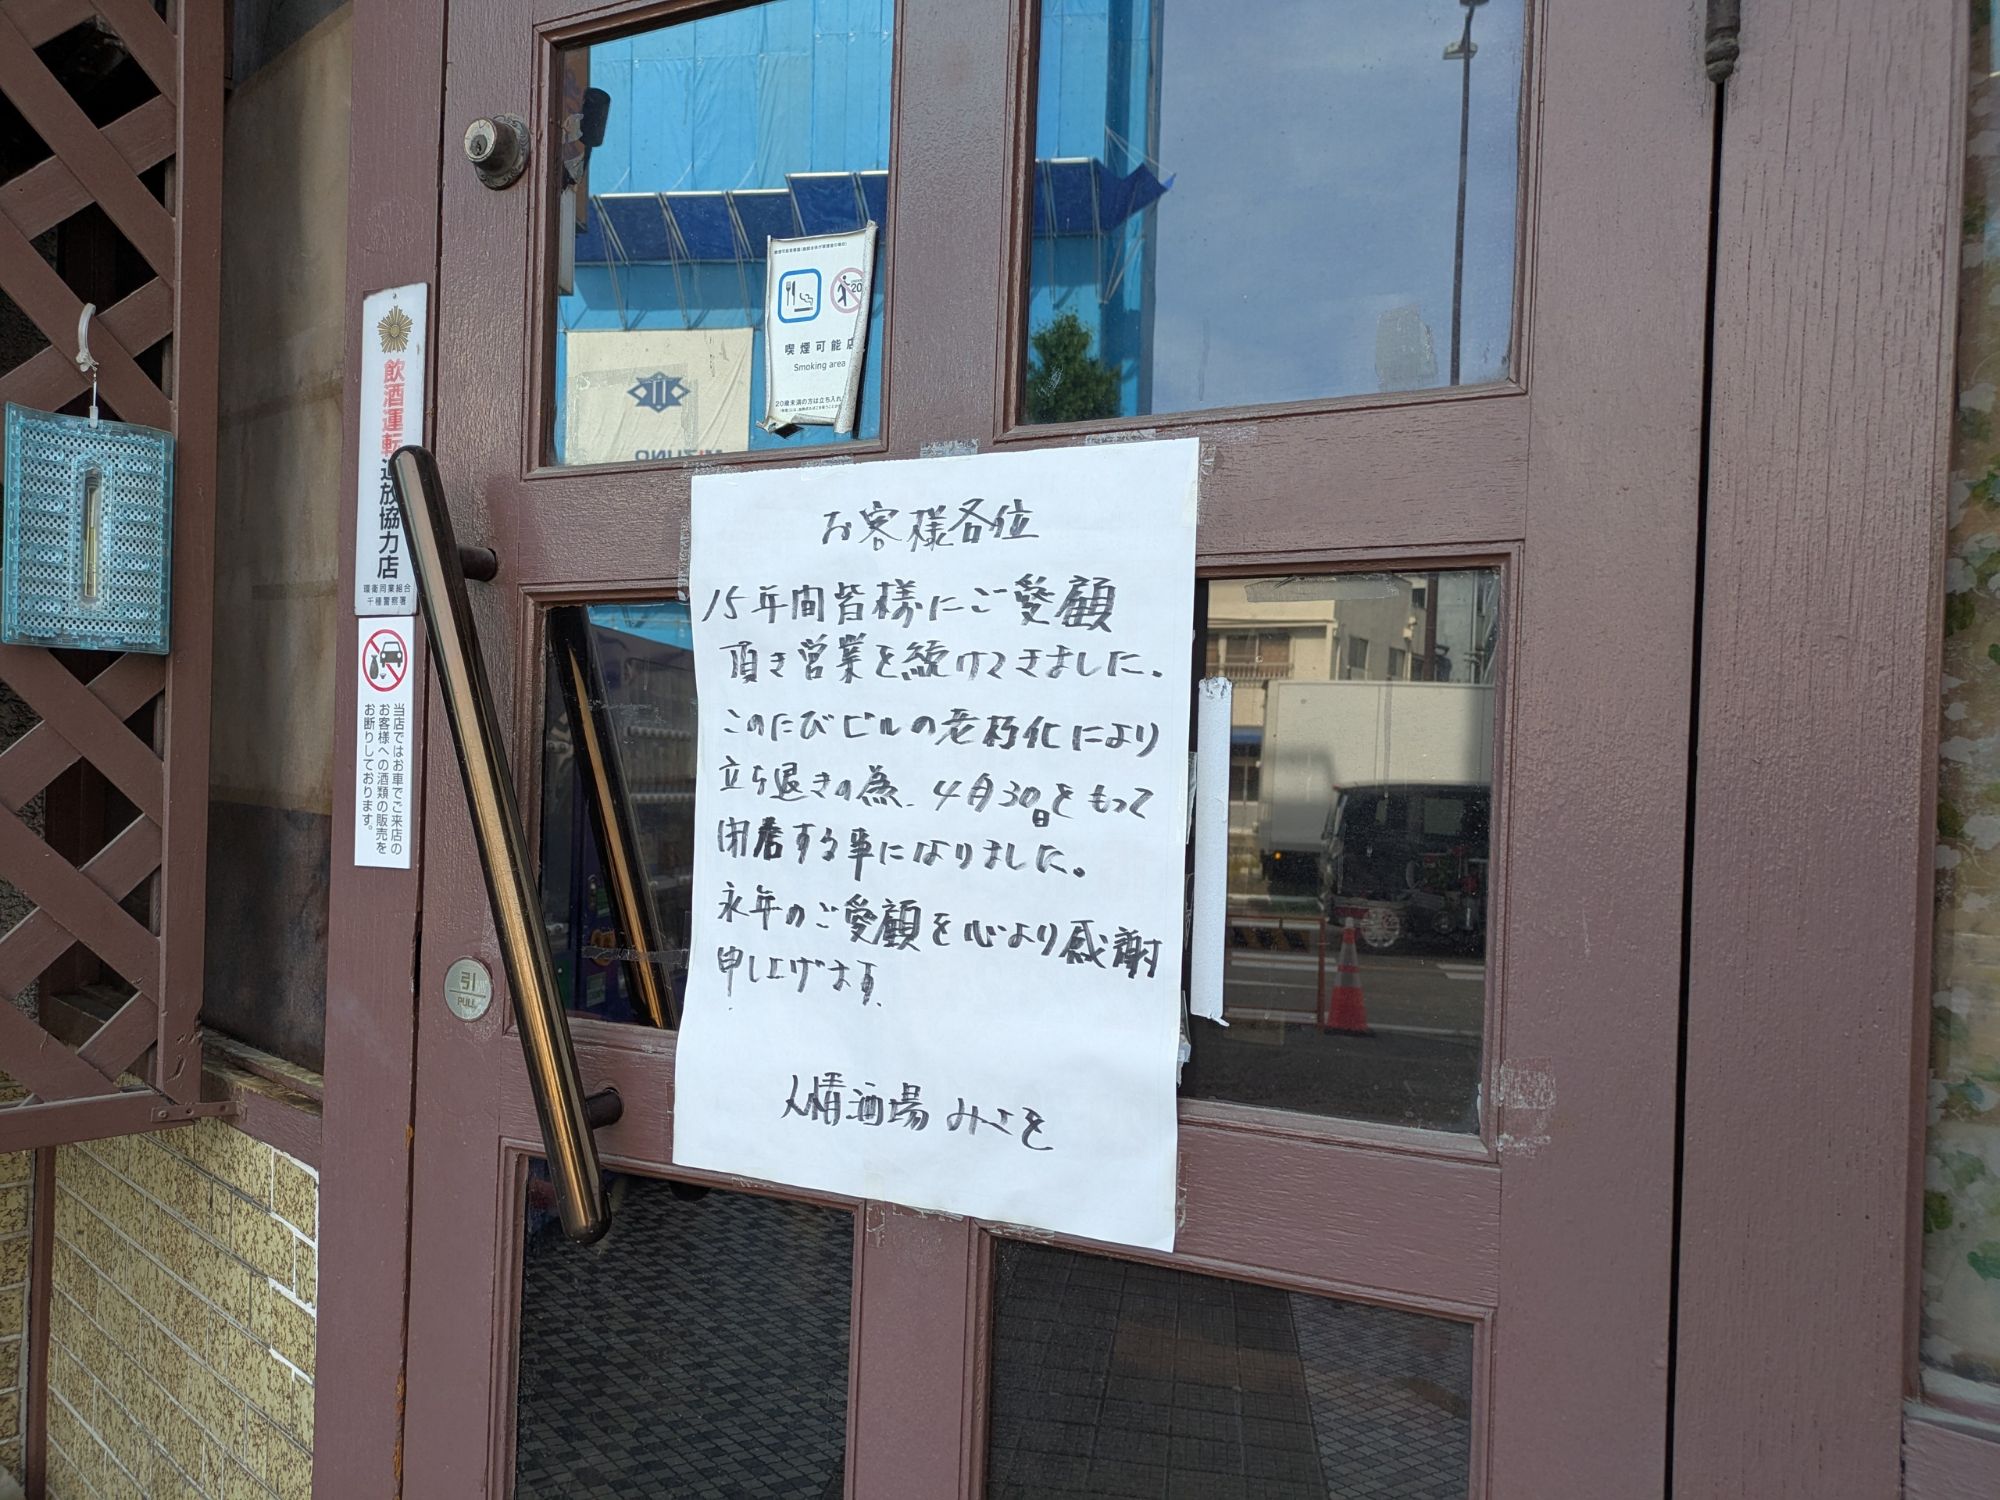 飲酒運転追放協力店
環衛同業組合
千種警察署
当店ではお車でご来店の
お客様への酒類の販売を
お断りしております。
引
PULL
20
喫煙可能店
Smoking area
20歳未満の方は立ち入れ
お客様各位
15年間皆様にご愛顧
頂き営業を続けてきました。
このたびビルの老朽化により
立ち退きの為、4月30日をもって
閉店する事になりました。
永年のご愛顧を心より感謝
申し上げます。
人情酒場 みさを